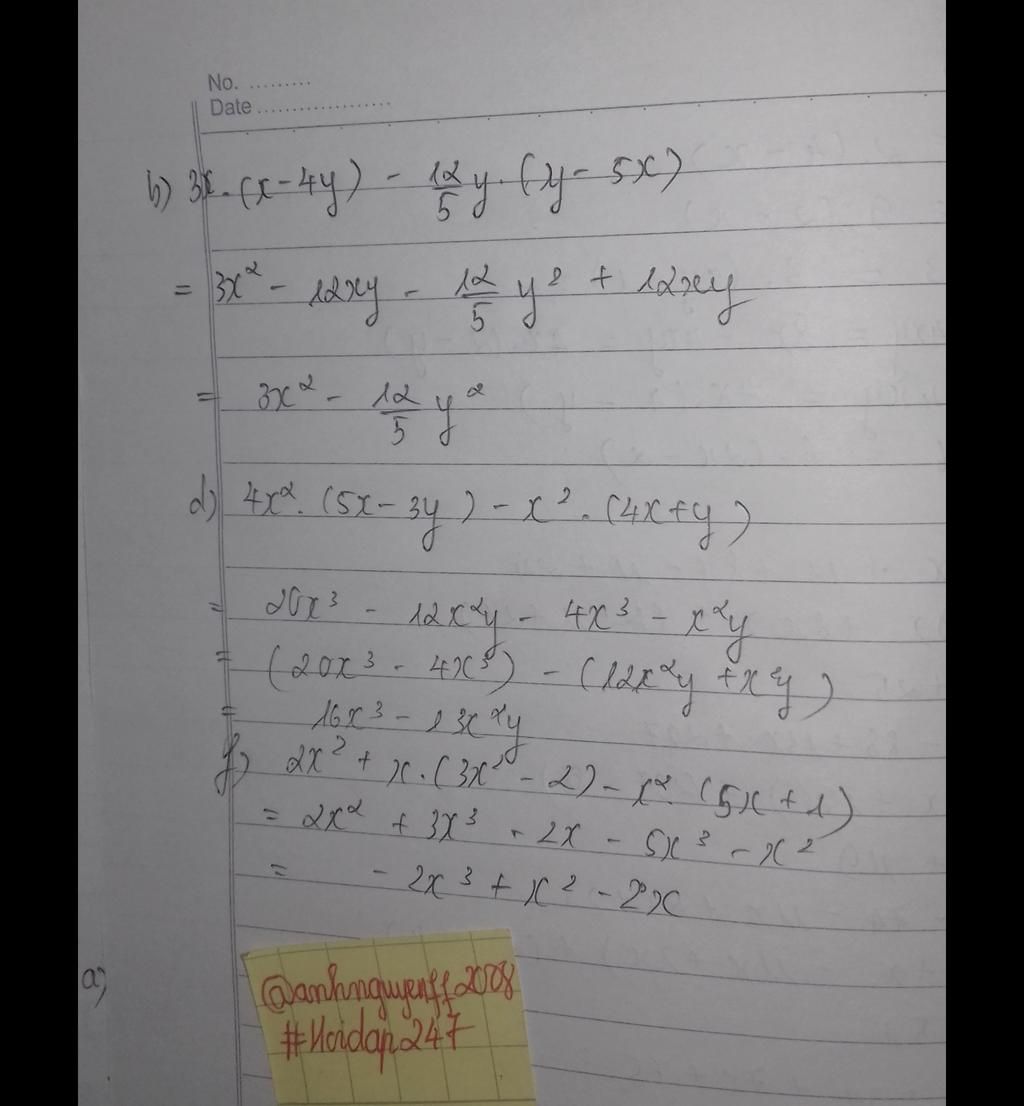 No. .........
Date ...................
b) 3x.(x-4y) - 12/5 y.(y-5x)
= 3x² - 12xy - 12/5 y² + 12xy
= 3x² - 12/5 y²
d) 4x².(5x-3y) - x².(4x+y)
= 20x³ - 12x²y - 4x³ - x²y
= (20x³ - 4x³) - (12x²y + x²y)
= 16x³ - 13x²y
f) 2x² + x.(3x² - 2) - x².(5x+1)
= 2x² + 3x³ - 2x - 5x³ - x²
= - 2x³ + x² - 2x
a)
@anhnguyenff2008
#Hoidap247